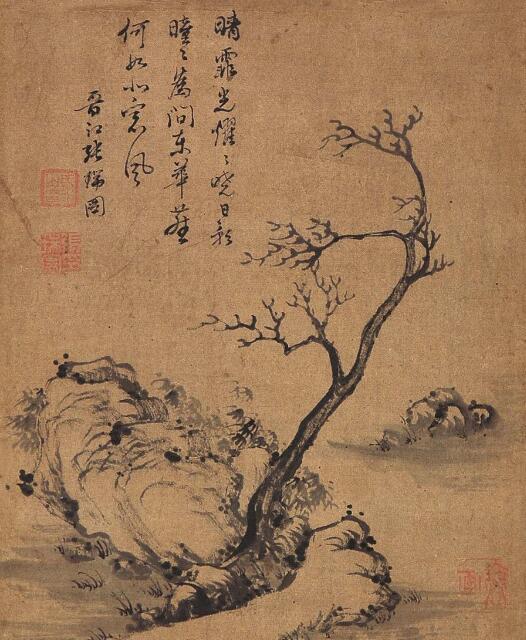 晴霏光燿〻曉日影
曈〻為問東華塵
何如北窓風
晉江張瑞圖